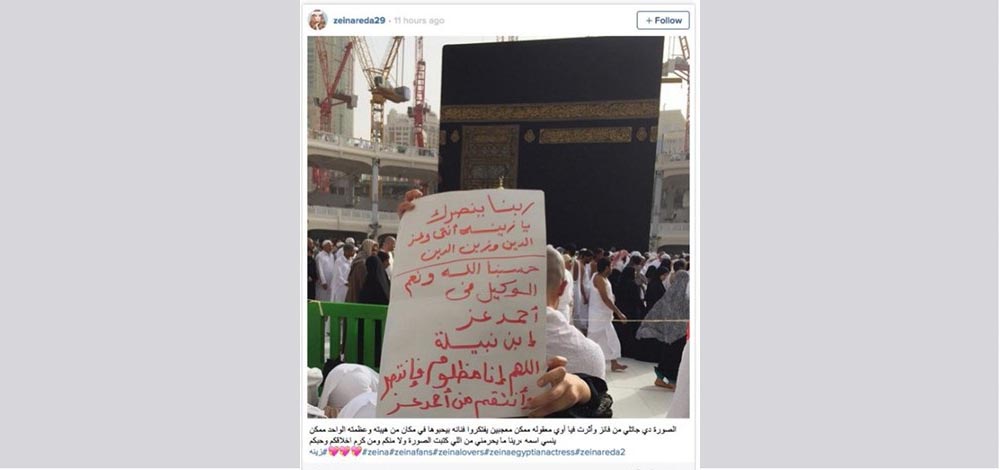 zeinareda29 · 11 hours ago
+ Follow
ربنا ينصرك
يا زينه أنتى وعز
الدين وزين الدين
حسبنا الله ونعم
الوكيل فى
أحمد عز
ابن نبيلة
اللهم إنا مظلوم فإنتصر
وأنتقم من أحمد عز
الصورة دي جاتلي من فانز وأثرت فيا أوي معقوله ممكن معجبين يفتكروا فنانه بيحبوها في مكان من هيبته وعظمته الواحد ممكن
ينسي اسمه ،ربنا ما يحرمني من اللي كتبت الصورة ولا منكم ومن كرم اخلاقكم وحبكم
#زينه💗💗💗💗#zeina#zeinafans#zeinalovers#zeinaegyptianactress#zeinareda2